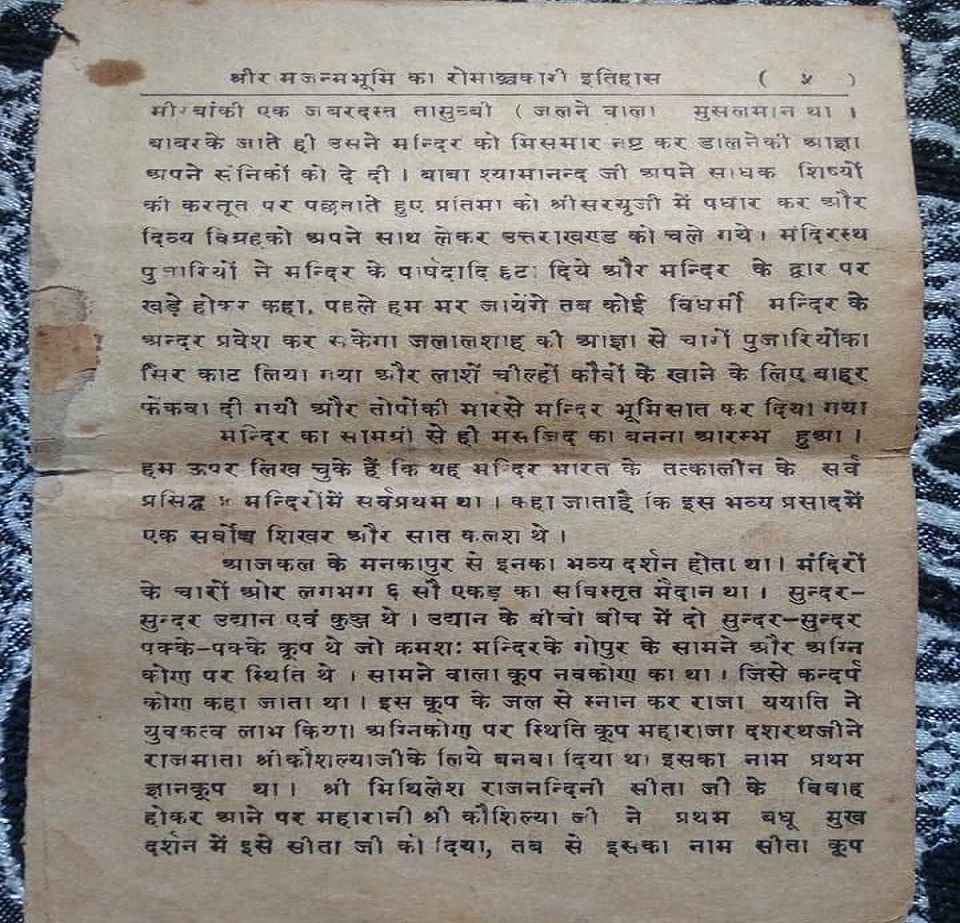 श्रीर मजन्मभूमि का रोमाञ्चकारी इतिहास ( ५ )
मीरबांकी एक जबरदस्त तासुब्बी ( जलने वाला मुसलमान था ।
बाबरके जाते ही उसने मन्दिर को मिसमार नष्ट कर डालनेकी आज्ञा
अपने सैनिकों को दे दी । बाबा श्यामानन्द जी अपने साधक शिष्यों
की करतूत पर पछताते हुए प्रतिमा को श्रीसरयूजी में पधार कर और
दिव्य विग्रहको अपने साथ लेकर उत्तराखण्ड को चले गये । मंदिरस्थ
पुजारियों ने मन्दिर के पार्षदादि हटा दिये और मन्दिर के द्वार पर
खड़े होकर कहा, पहले हम मर जायंगे तब कोई विधर्मी मन्दिर के
अन्दर प्रवेश कर सकेगा जलालशाह की आज्ञा से चारों पुजारियोंका
सिर काट लिया गया और लाशें चील्हों कौवों के खाने के लिए बाहर
फेंकवा दी गयी और तोपोंकी मारसे मन्दिर भूमिसात कर दिया गया
मन्दिर का सामग्री से ही मसजिद का बनना आरम्भ हुआ ।
हम ऊपर लिख चुके हैं कि यह मन्दिर भारत के तत्कालीन के सर्व
प्रसिद्ध मन्दिरोंमें सर्वप्रथम था । कहा जाताहै कि इस भव्य प्रसादमें
एक सर्वोच्च शिखर और सात कलश थे ।
आजकल के मनकापुर से इनका भव्य दर्शन होता था । मंदिरों
के चारों ओर लगभग ६ सौ एकड़ का सविस्तृत मैदान था । सुन्दर–
सुन्दर उद्यान एवं कुञ्ज थे । उद्यान के बीचो बीच में दो सुन्दर–सुन्दर
पक्के–पक्के कूप थे जो क्रमशः मन्दिरके गोपुर के सामने और अग्नि
कोण पर स्थिति थे । सामने वाला कूप नवकोण का था । जिसे कन्दर्प
कोण कहा जाता था । इस कूप के जल से स्नान कर राजा ययाति ने
युवकत्व लाभ किया। अग्निकोण पर स्थिति कूप महाराजा दशरथजीने
राजमाता श्रीकौशल्याजीके लिये बनबा दिया था इसका नाम प्रथम
ज्ञानकूप था । श्री मिथिलेश राजनन्दिनी सीता जी के विवाह
होकर आने पर महारानी श्री कौशिल्या जी ने प्रथम बधू मुख
दर्शन में इसे सीता जी को दिया, तब से इसका नाम सीता कूप